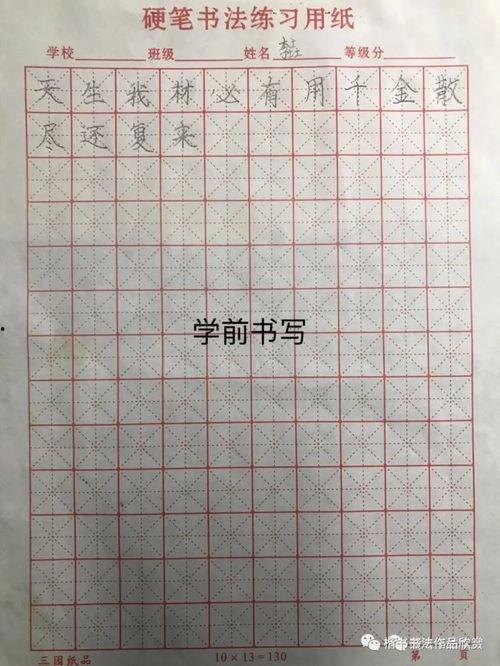 硬笔书法练习用纸
学校 班级 姓名 等级分
天生我材必有用千金散
尽还复来
学前书写
三园纸品 10×13=130 第 页
楷书书法作品欣赏